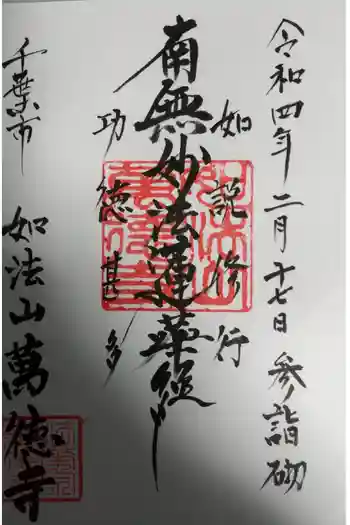 令和四年二月十七日参詣砌
如説修行
南無妙法蓮華経
功徳甚多
千葉市
如法山萬徳寺